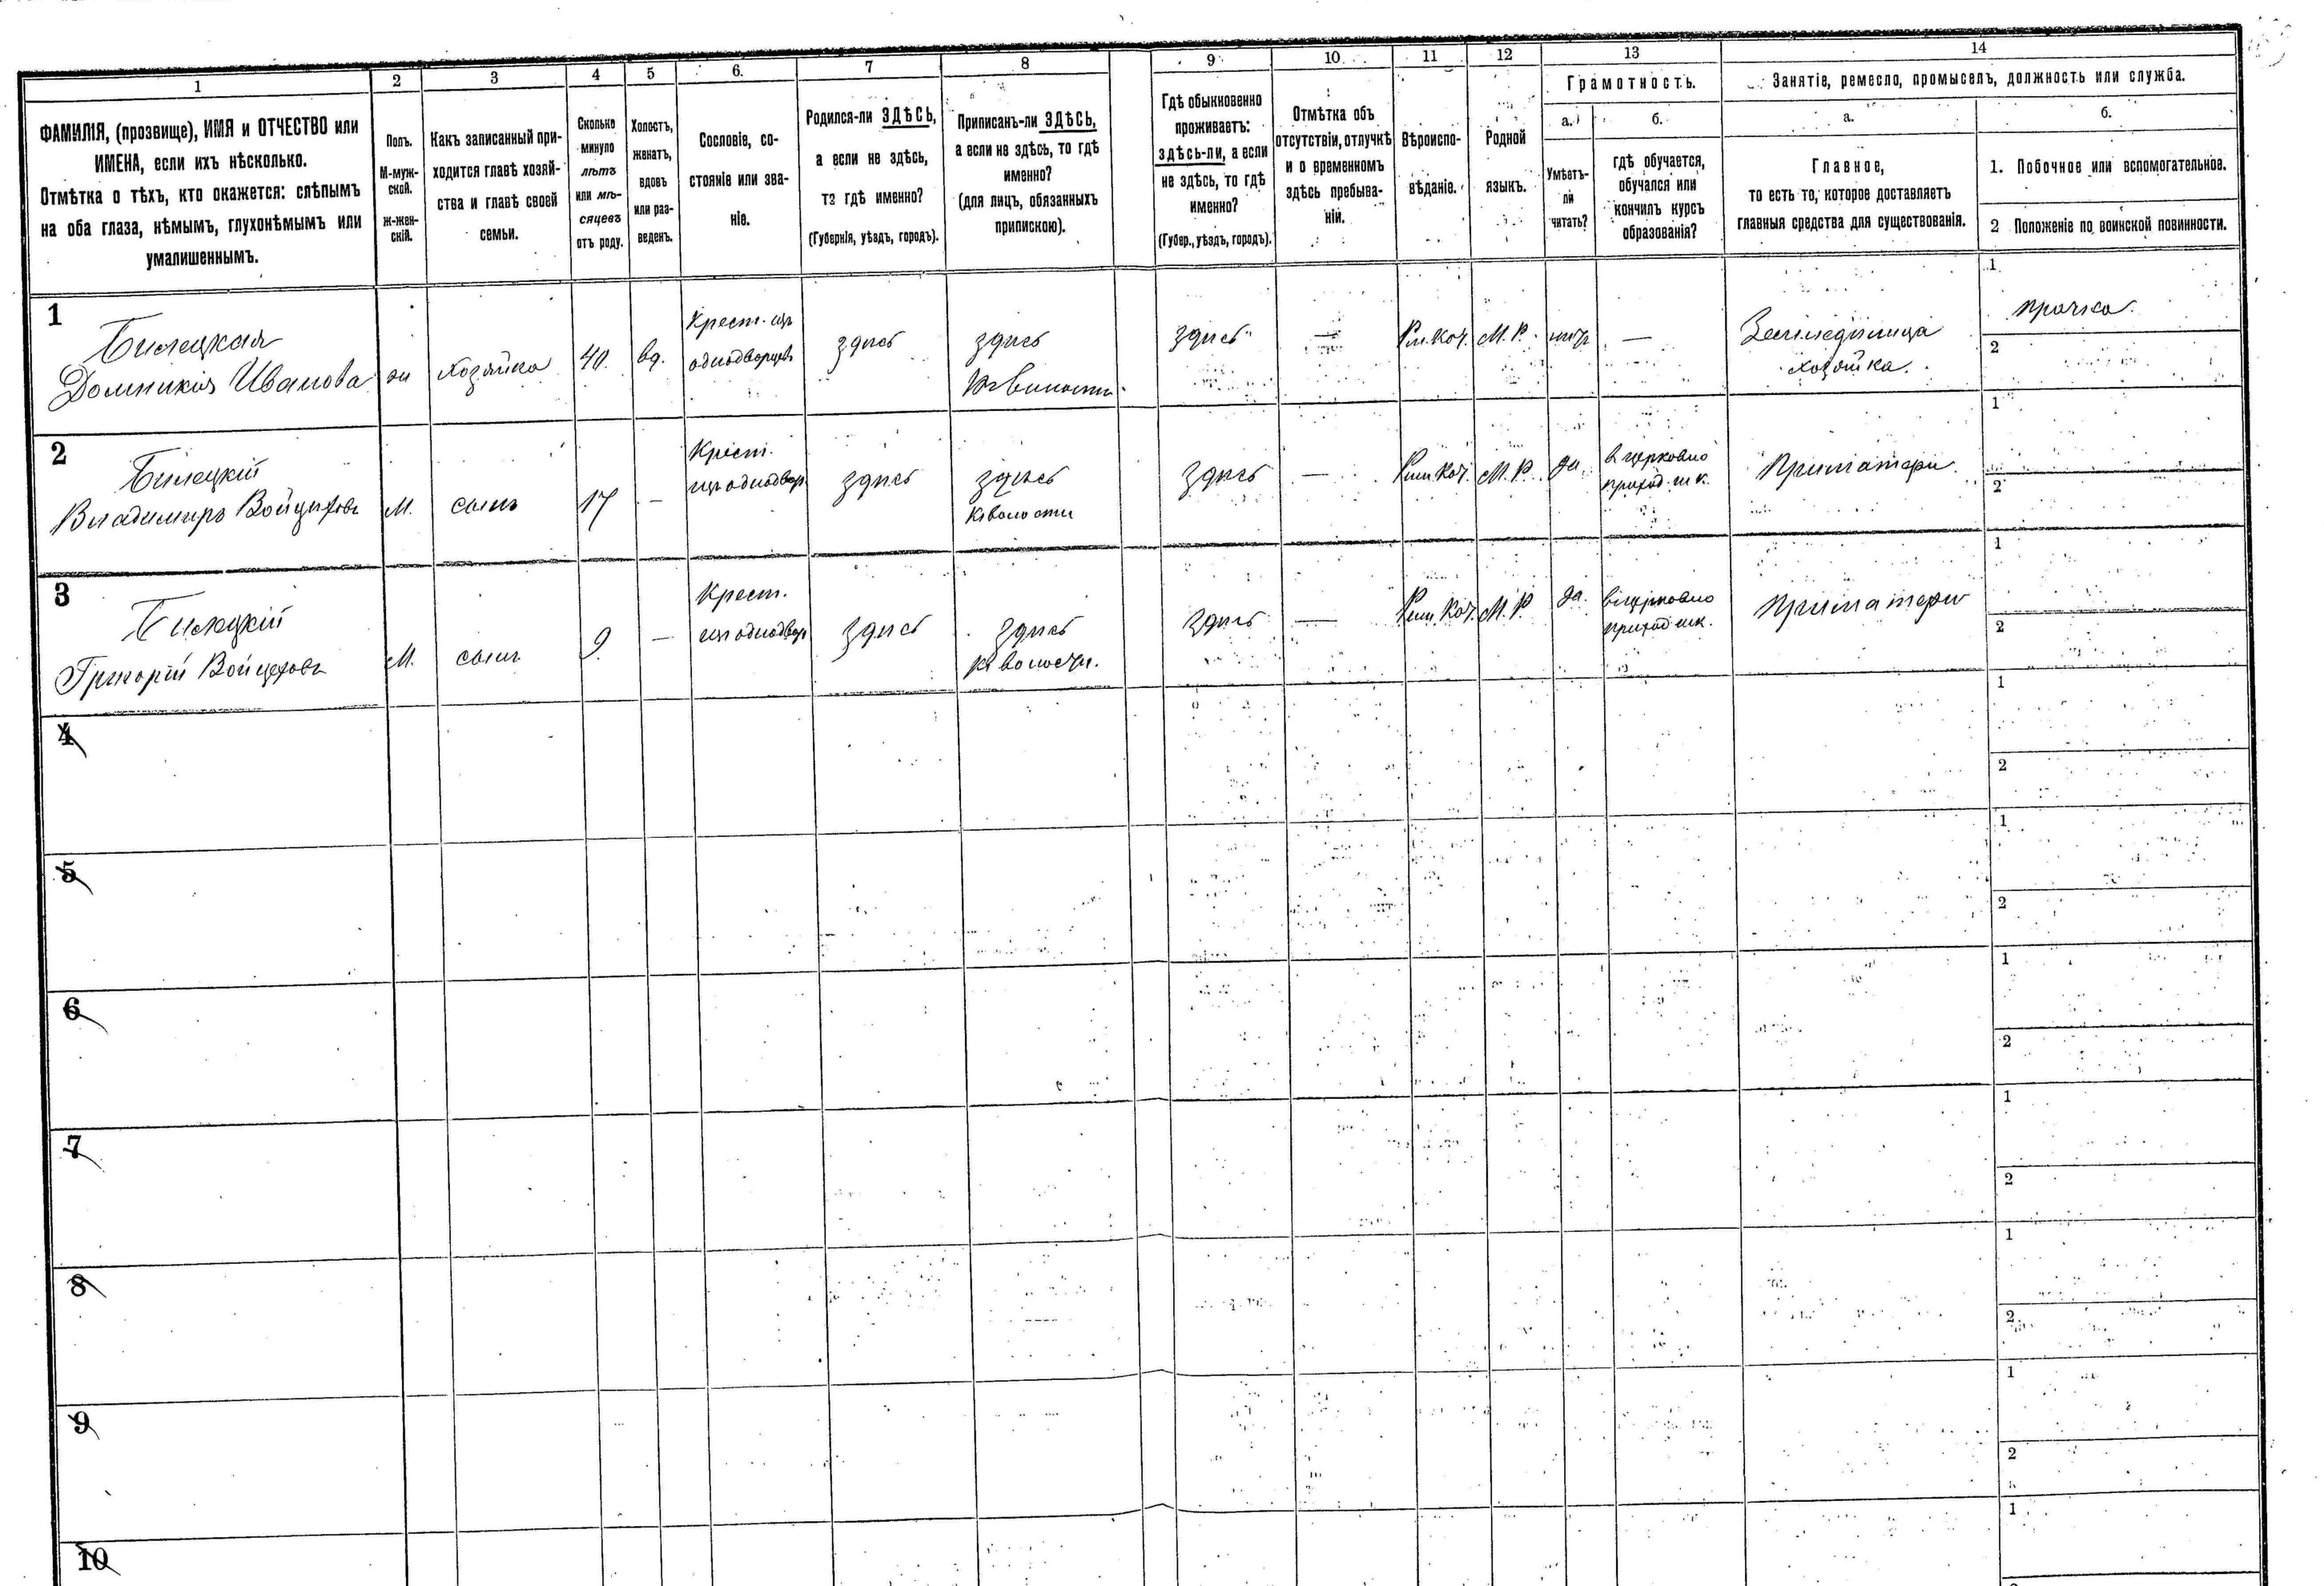 1 2 3 4 5 6. 7 8 9 10 11 12 13 14
ФАМИЛІЯ, (прозвище), ИМЯ и ОТЧЕСТВО или
ИМЕНА, если ихъ нѣсколько.
Отмѣтка о тѣхъ, кто окажется: слѣпымъ
на оба глаза, нѣмымъ, глухонѣмымъ или
умалишеннымъ.
Полъ.
М-муж-
ской.
ж-жен-
скій.
Какъ записанный при-
ходится главѣ хозяй-
ства и главѣ своей
семьи.
Сколько
минуло
лѣтъ
или мѣ-
сяцевъ
отъ роду.
Холостъ,
женатъ,
вдовъ
или раз-
веденъ.
Сословіе, со-
стояніе или зва-
ніе.
Родился-ли ЗДѢСЬ,
а если не здѣсь,
то гдѣ именно?
(Губернія, уѣздъ, городъ).
Приписанъ-ли ЗДѢСЬ,
а если не здѣсь, то гдѣ
именно?
(для лицъ, обязанныхъ
припискою).
Гдѣ обыкновенно
проживаетъ:
здѣсь-ли, а если
не здѣсь, то гдѣ
именно?
(Губер., уѣздъ, городъ).
Отмѣтка объ
отсутствіи, отлучкѣ
и о временномъ
здѣсь пребыва-
ніи.
Вѣроиспо-
вѣданіе.
Родной
языкъ.
Грамотность.
а.
Умѣетъ-
ли
читать?
б.
гдѣ обучается,
обучался или
кончилъ курсъ
образованія?
Занятіе, ремесло, промыселъ, должность или служба.
а.
Главное,
то есть то, которое доставляетъ
главныя средства для существованія.
б.
1. Побочное или вспомогательное.
2 Положеніе по воинской повинности.
1
Билецкая
Домникія Иванова
ж
хозяйка
40.
вд.
Крест. изъ
однодворцевъ
здѣсь
здѣсь
къ волости.
здѣсь
—
Рим. Кат.
М. Р.
нѣтъ
—
Земледѣлица
хозяйка.
1
прачка.
2
2
Билецкій
Владимиръ Войцеховъ
М.
сынъ
17
—
Крест.
изъ однодвор.
здѣсь
здѣсь
къ волости
здѣсь
—
Рим. Кат.
М. Р.
да.
в церковно
приход. шк.
При матери
1
2
3
Билецкій
Григорій Войцеховъ
М.
сынъ
9.
—
Крест.
изъ однодвор
здѣсь
здѣсь
къ волости.
здѣсь
—
Рим. Кат.
М. Р.
да.
в церковно
приход шк.
При матери
1
2
4
1
2
5
1
2
6
1
2
7
1
2
8
1
2
9
1
2
10
1